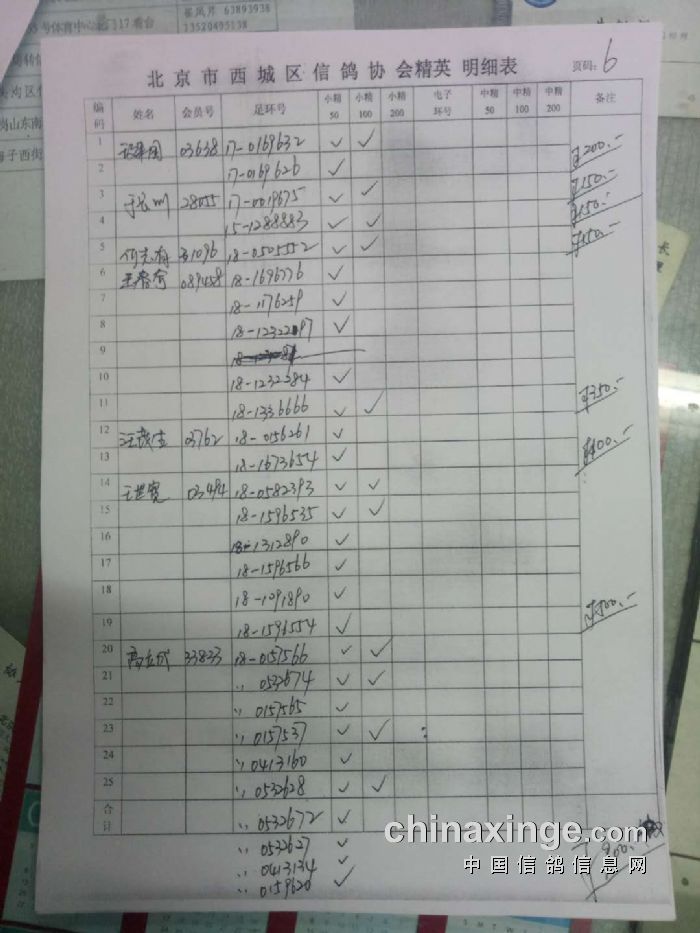 崔凤芹 63893938
号体育中心北门17看台
13520495138
北京市西城区信鸽协会精英 明细表
页码: 6
编码 姓名 会员号 足环号 小精50 小精100 小精200 电子环号 中精50 中精100 中精200 备注
1 03638 17-0169632 ✓ ✓
2 17-0169626 ✓ ¥200.-
3 28055 17-0019675 ✓ ✓ ¥150.-
4 15-1288883 ✓ ✓ ¥150.-
5 31096 18-0505552 ✓ ✓ ¥150.-
6 王春奇 089458 18-1696776 ✓
7 18-1176259 ✓
8 18-1232297 ✓
9
10 18-1232284 ✓
11 18-1336666 ✓ ✓ ¥350.-
12 03762 18-0156261 ✓
13 18-1673654 ✓ ¥100.-
14 王世宽 03494 18-0582393 ✓ ✓
15 18-1596535 ✓ ✓
16 18-1312890 ✓
17 18-1596566 ✓
18 18-1091890 ✓
19 18-1596554 ✓ ¥500.-
20 33833 18-0157566 ✓ ✓
21 〃 0532674 ✓ ✓
22 〃 0157565 ✓
23 〃 0157537 ✓ ✓
24 〃 0413160 ✓
25 〃 0532628 ✓ ✓
合计 〃 0532672 ✓
〃 0532627 ✓
〃 0413134 ✓
〃 0159620 ✓
¥900.-
chinaxinge.com
中国信鸽信息网